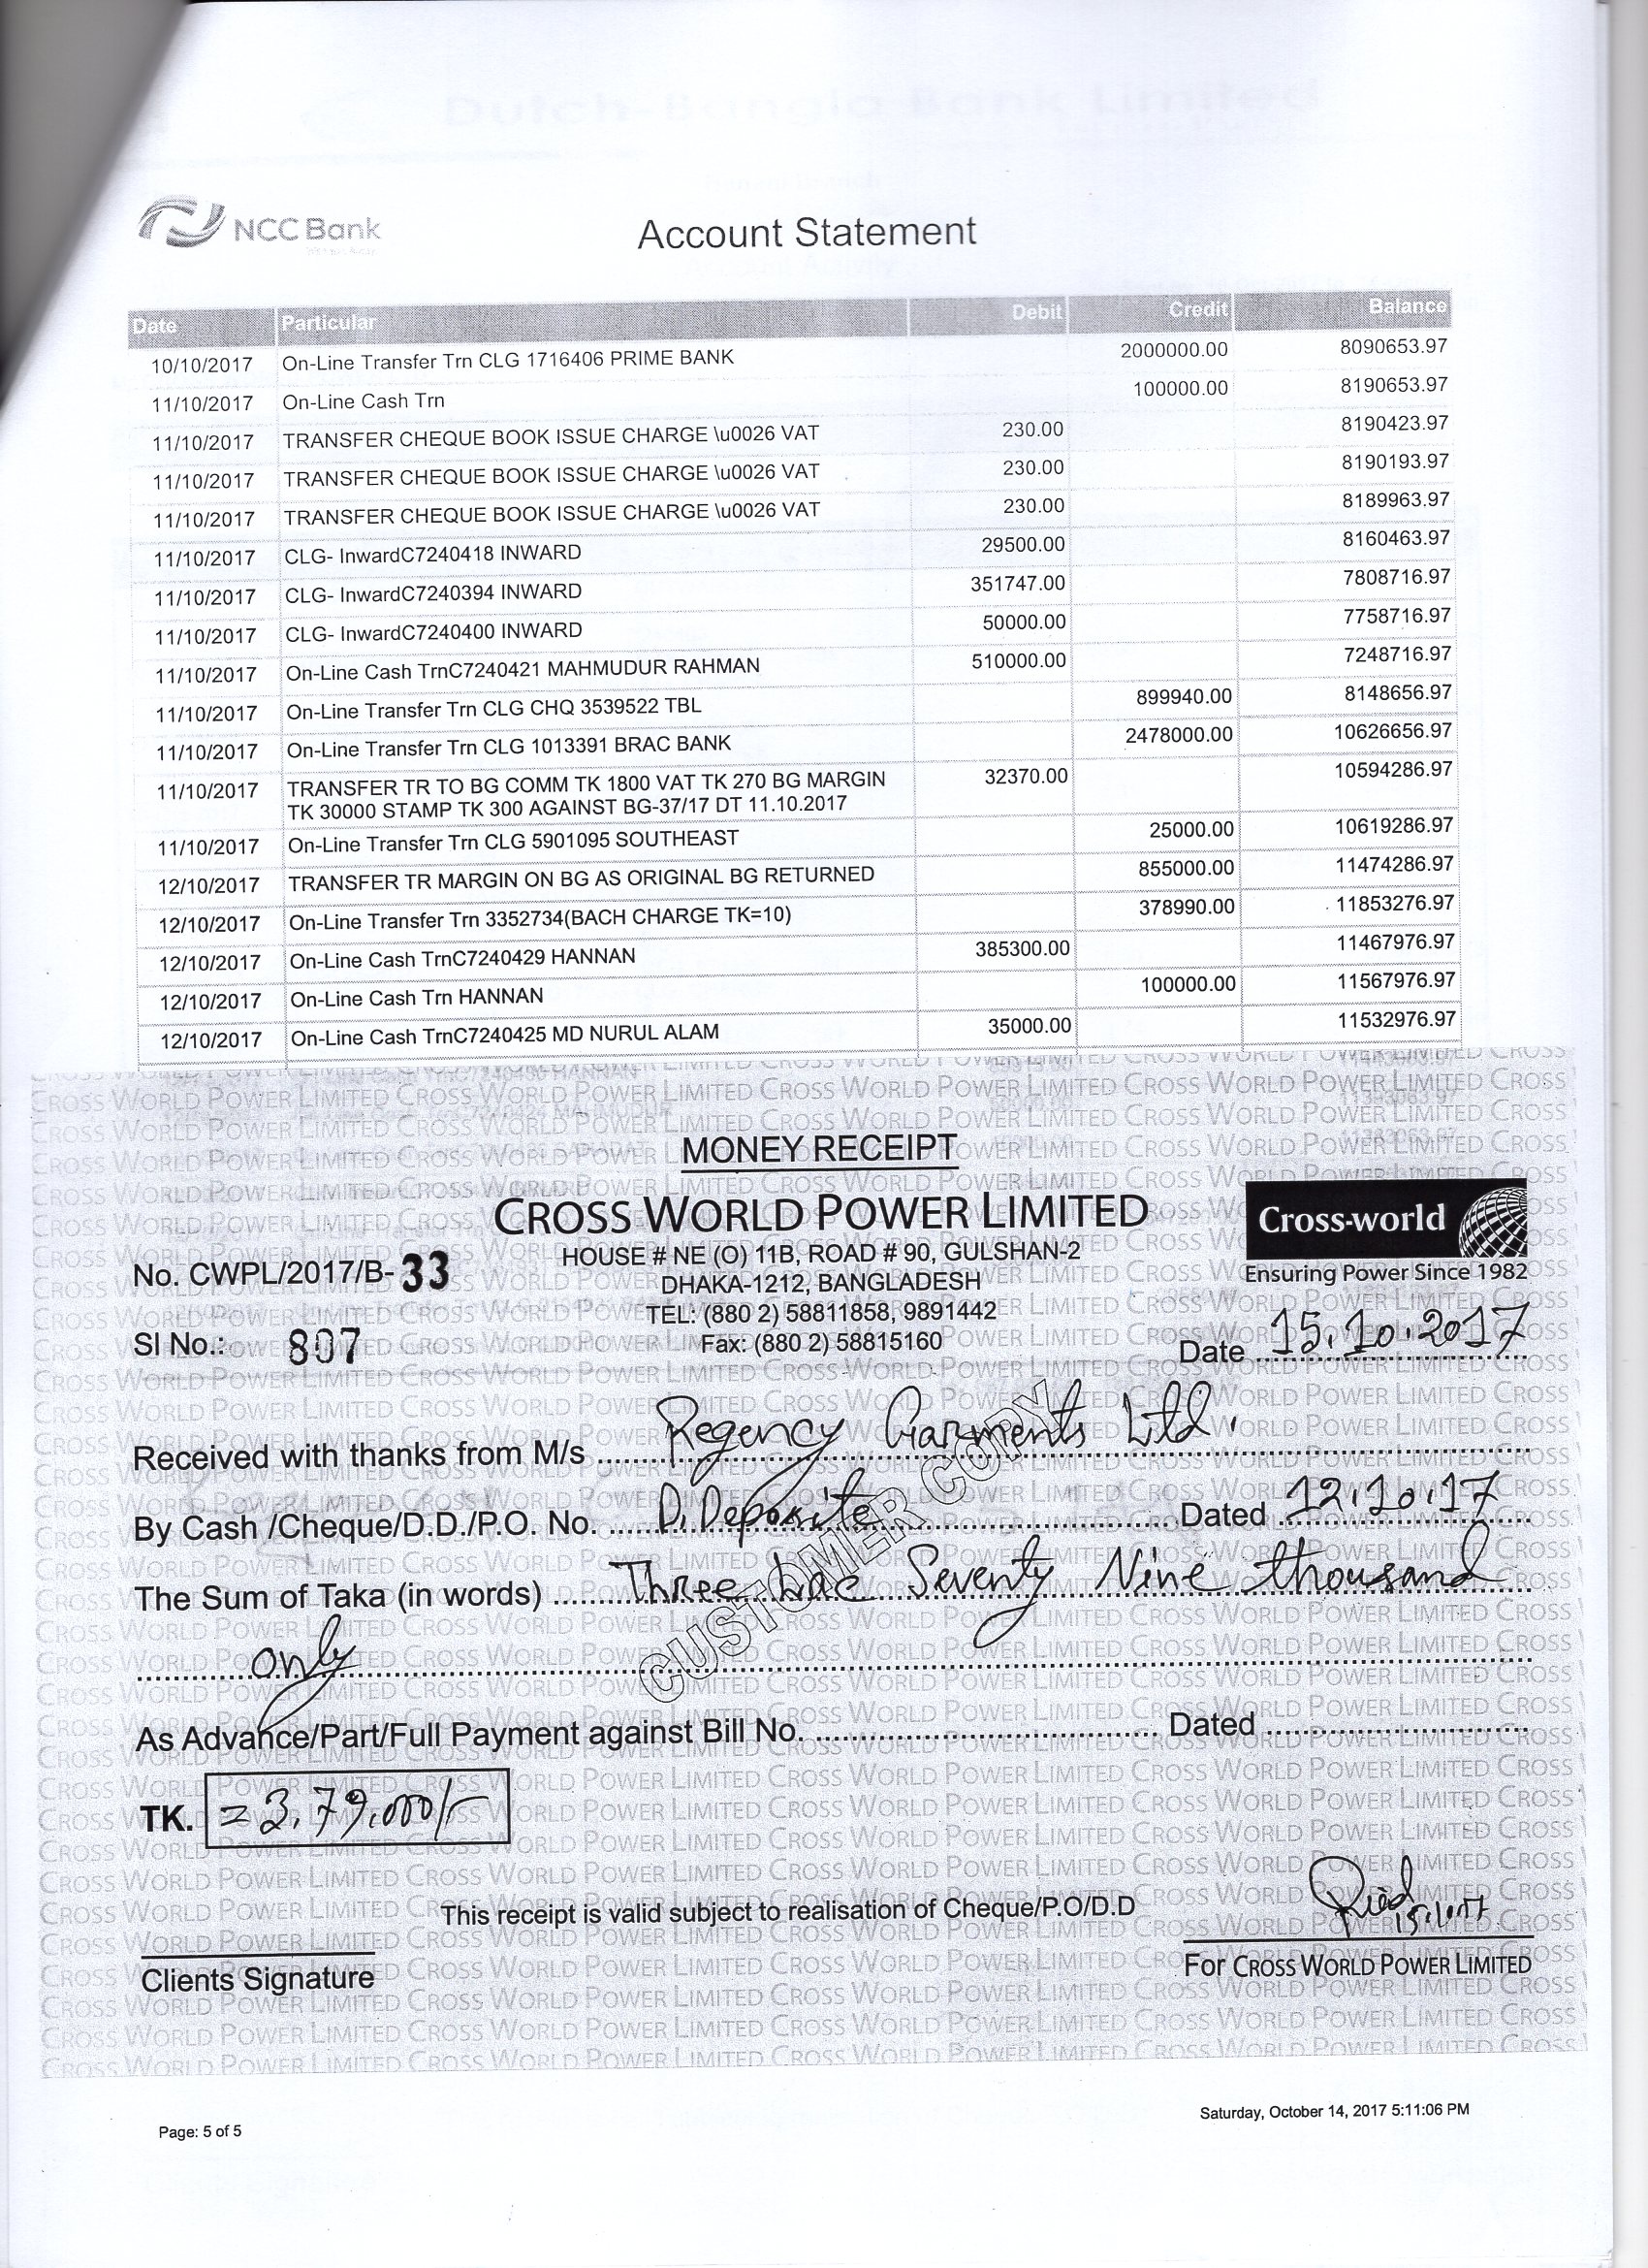 Dutch-Bangla Bank Limited
NCC Bank
Account Statement
Date Particular Debit Credit Balance
10/10/2017 On-Line Transfer Trn CLG 1716406 PRIME BANK 2000000.00 8090653.97
11/10/2017 On-Line Cash Trn 100000.00 8190653.97
11/10/2017 TRANSFER CHEQUE BOOK ISSUE CHARGE \u0026 VAT 230.00 8190423.97
11/10/2017 TRANSFER CHEQUE BOOK ISSUE CHARGE \u0026 VAT 230.00 8190193.97
11/10/2017 TRANSFER CHEQUE BOOK ISSUE CHARGE \u0026 VAT 230.00 8189963.97
11/10/2017 CLG- InwardC7240418 INWARD 29500.00 8160463.97
11/10/2017 CLG- InwardC7240394 INWARD 351747.00 7808716.97
11/10/2017 CLG- InwardC7240400 INWARD 50000.00 7758716.97
11/10/2017 On-Line Cash TrnC7240421 MAHMUDUR RAHMAN 510000.00 7248716.97
11/10/2017 On-Line Transfer Trn CLG CHQ 3539522 TBL 899940.00 8148656.97
11/10/2017 On-Line Transfer Trn CLG 1013391 BRAC BANK 2478000.00 10626656.97
11/10/2017 TRANSFER TR TO BG COMM TK 1800 VAT TK 270 BG MARGIN 32370.00 10594286.97
TK 30000 STAMP TK 300 AGAINST BG-37/17 DT 11.10.2017
11/10/2017 On-Line Transfer Trn CLG 5901095 SOUTHEAST 25000.00 10619286.97
12/10/2017 TRANSFER TR MARGIN ON BG AS ORIGINAL BG RETURNED 855000.00 11474286.97
12/10/2017 On-Line Transfer Trn 3352734(BACH CHARGE TK=10) 378990.00 11853276.97
12/10/2017 On-Line Cash TrnC7240429 HANNAN 385300.00 11467976.97
12/10/2017 On-Line Cash Trn HANNAN 100000.00 11567976.97
12/10/2017 On-Line Cash TrnC7240425 MD NURUL ALAM 35000.00 11532976.97
MONEY RECEIPT
CROSS WORLD POWER LIMITED
Cross-world
HOUSE # NE (O) 11B, ROAD # 90, GULSHAN-2
No. CWPL/2017/B-33
DHAKA-1212, BANGLADESH
Ensuring Power Since 1982
TEL: (880 2) 58811858, 9891442
Sl No.: 807
Fax: (880 2) 58815160
Date 15.10.2017
Received with thanks from M/s Regency Garments Ltd.
By Cash /Cheque/D.D./P.O. No. D. Deposite Dated 12.10.17
The Sum of Taka (in words) Three Lac Seventy Nine thousand
only
CUSTOMER COPY
As Advance/Part/Full Payment against Bill No. Dated
TK. =3,79,000/-
This receipt is valid subject to realisation of Cheque/P.O/D.D
Clients Signature
For CROSS WORLD POWER LIMITED
Saturday, October 14, 2017 5:11:06 PM
Page: 5 of 5